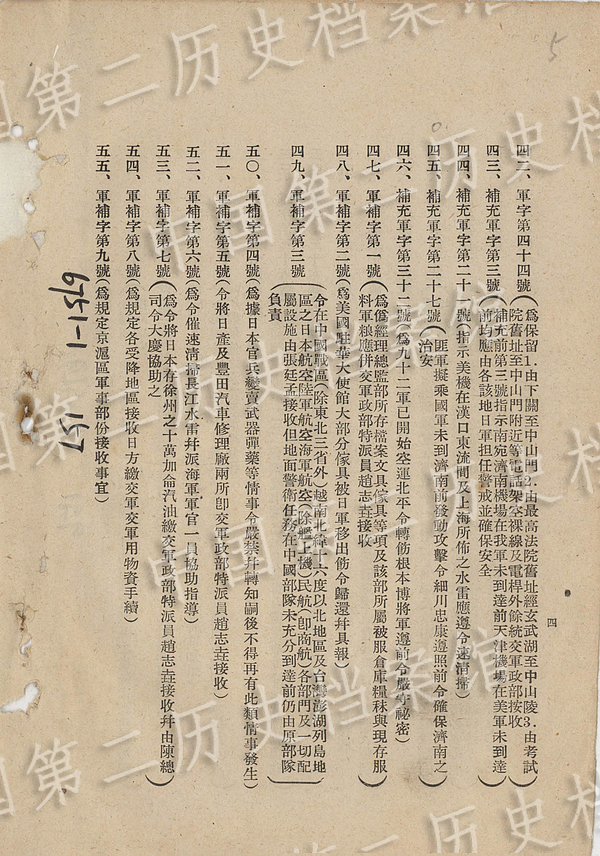 四二、軍字第四十四號(爲保留1.由下關至中山門2.由最高法院舊址經玄武湖至中山陵3.由考試
院舊址至中山門附近等電話架空裸線及電桿外餘統交軍政部接收)
四三、軍補字第三號(補充前第三號指示南宛濟南機場在我軍未到達前天津機場在美軍未到達
前均應由各該地日軍担任警戒並確保安全)
四四、補充軍字第二十號(指示美機在漢口東流間及上海所佈之水雷應遵令速清掃)
四五、補充軍字第二十七號(匪軍擬乘國軍未到濟南前發動攻擊令細川忠康遵照前令確保濟南之
治安)
四六、補充軍字第三十二號(爲九十二軍已開始空運北平令轉飭根本博將軍遵前令嚴守祕密)
四七、軍補字第一號(爲僞經理總監部所存檔案文具傢具等項及該部所屬被服倉庫糧秣與現存服
料軍粮應併交軍政部特派員趙志垚接收)
四八、軍補字第二號(爲美國駐華大使館大部分傢具被日軍移出飭令歸還幷具報)
四九、軍補字第三號(令在中國戰區(除東北三省外)越南北緯十六度以北地區及台灣澎湖列島地
區之日本航空陸軍航空海軍航空(除艦上機)民航(卽商航)各部門及一切配
屬設施由張廷孟接收但地面警衛任務在中國部隊未充分到達前仍由原部隊
負責)
五〇、軍補字第四號(爲據日本官兵變賣武器彈藥等情事令嚴禁幷轉知嗣後不得再有此類情事發生)
五一、軍補字第五號(令將日產及豐田汽車修理廠兩所卽交軍政部特派員趙志垚接收)
五二、軍補字第六號(爲令催速清掃長江水雷幷派海軍軍官一員協助指導)
五三、軍補字第七號(爲令將日本存徐州之十萬加侖汽油繳交軍政部特派員趙志垚接收幷由陳總
司令大慶協助之)
五四、軍補字第八號(爲規定各受降地區接收日方繳交軍用物資手續)
五五、軍補字第九號(爲規定京滬區軍事部份接收事宜)
四
5
157
中国第二历史档案馆
中国第二历史档案馆
中国第二历史档案馆